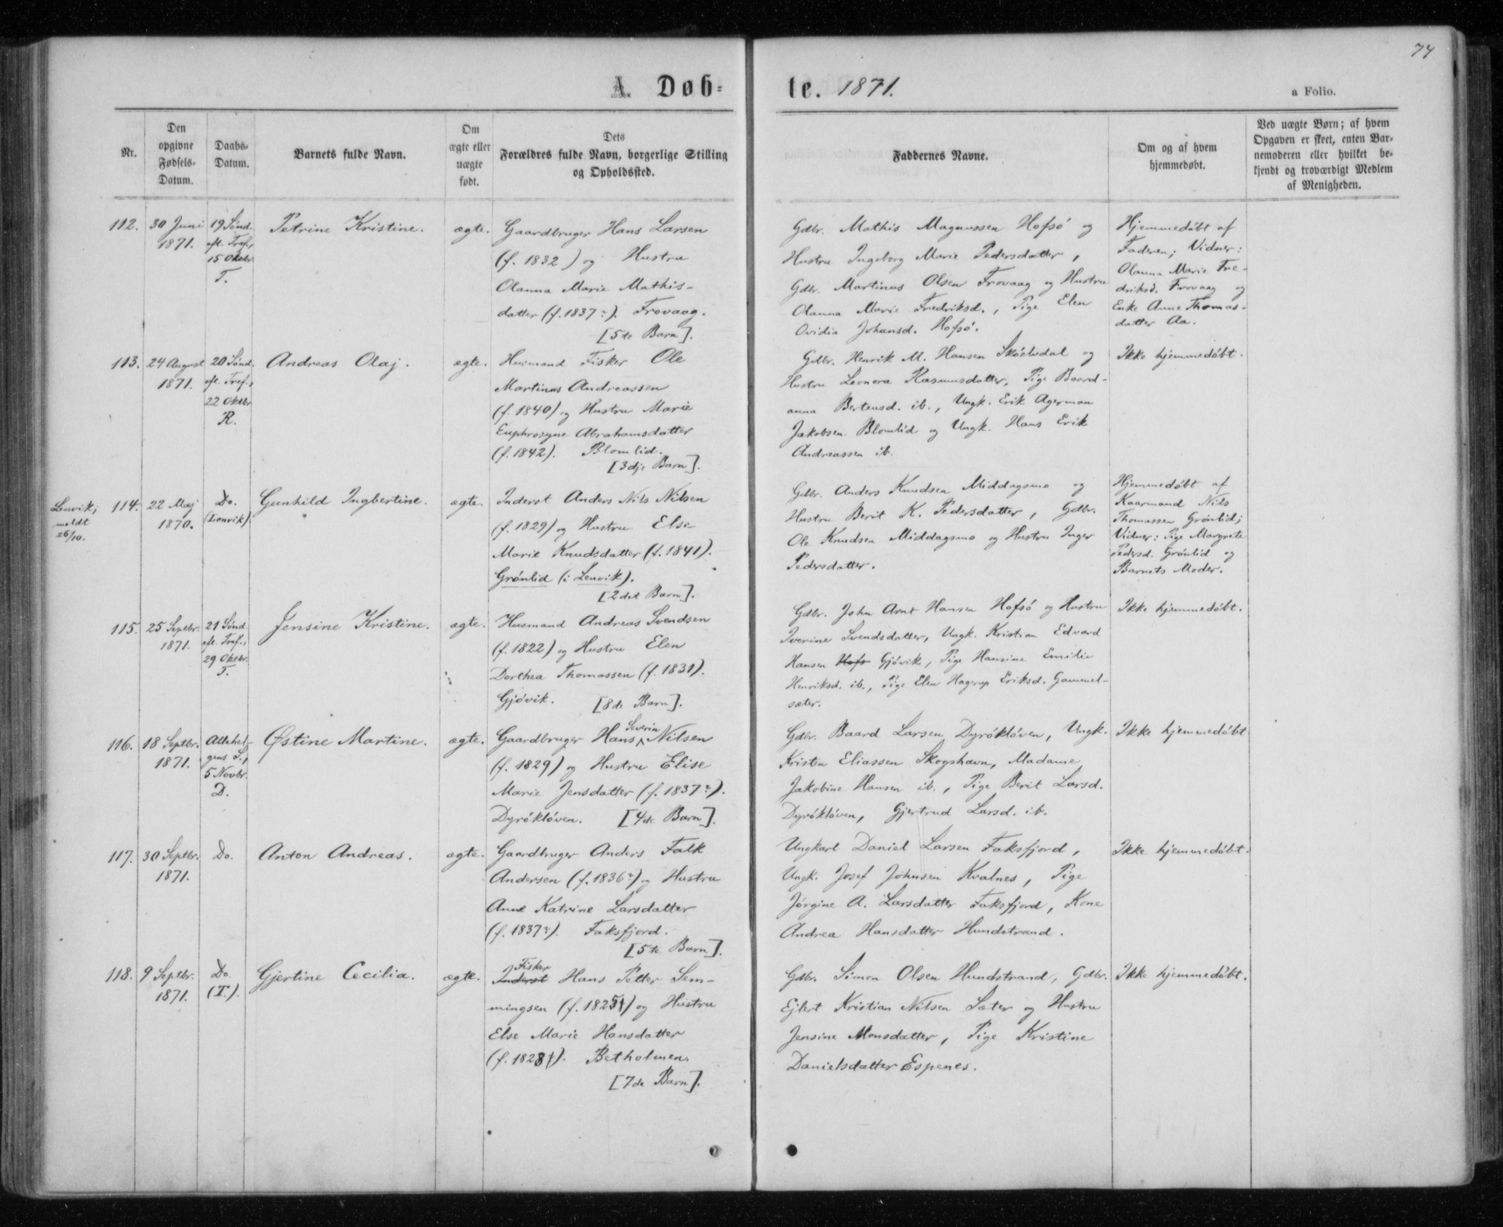 74
A. Døb-
te. 1871.
a Folio.
Nr.
Den
opgivne
Fødsels-
Datum.
Daabs-
Datum.
Barnets fulde Navn.
Om
ægte eller
uægte
født.
Dets
Forældres fulde Navn, borgerlige Stilling
og Opholdssted.
Faddernes Navne.
Om og af hvem
hjemmedøbt.
Ved uægte Børn; af hvem
Opgaven er skeet, enten Bar-
nemoderen eller hvilket be-
kjendt og troværdigt Medlem
af Menigheden.
112.
30 Juni
1871.
19 Sønd.
eft. Tref.,
15 Oktbr.
T.
Petrine Kristine.
ægte.
Gaardbruger Hans Larsen
(f. 1832) og Hustru
Olanna Marie Mathis-
datter (f. 1837 ). Frovaag.
[5te Barn].
Gdbr. Mathis Magnussen Hofsø og
Hustru Ingeborg Marie Pedersdatter,
Gdbr. Martinus Olsen Frovaag og Hustru
Olanna Marie Fredriksd., Pige Elen
Ovidia Johansd. Hofsø.
Hjemmedøbt af
Faderen; Vidner:
Olanna Marie Fre-
driksd. Frovaag og
Enke Anne Thomas-
datter Aa.
113.
24 August
1871.
20 Sønd.
eft. Tref.,
22 Oktbr.
R.
Andreas Olaj.
ægte.
Husmand Fisker Ole
Martinus Andreassen
(f. 1840) og Hustru Marie
Euphrosyne Abrahamsdatter
(f. 1842). Blomlid.
[3dje Barn].
Gdbr. Henrik M. Hansen
og
Hustru Leonora Rasmusdatter, Pige Baard-
anna Berteusd. ib., Ungk. Erik Agerman
Jakobsen Blomlid og Ungk. Hans Erik
Andreassen ib.
Ikke hjemmedøbt.
Lenvik;
meldt
26/10.
114.
22 Maj
1870.
Do.
(Lenvik).
Gunhild Ingbertine.
ægte.
Inderst Anders Nils Nilsen
(f. 1829) og Hustru Else
Marie Knudsdatter (f. 1841).
Grønlid (i Lenvik).
[2det Barn].
Gdbr. Anders Knudsen Middagsmo og
Hustru Berit K. Pedersdatter, Gdbr.
Ole Knudsen Middagsmo og Hustru Inger
Pedersdatter.
Hjemmedøbt af
Kaarmand Nils
Thomassen Grønlid;
Vidner: Pige Margrete
Pedersd. Grønlid og
Barnets Moder.
115.
25 Septbr.
1871.
21 Sønd.
eft. Tref.,
29 Oktbr.
T.
Jensine Kristine.
ægte.
Husmand Andreas Svendsen
(f. 1822) og Hustru Elen
Dorthea Thomassen (f. 1831).
Gjøvik. [8de Barn].
Gdbr. John Arnt Hansen Hofsø og Hustru
Iverine Svendsdatter, Ungk. Kristian Edvard
Hansen Hofs Gjøvik, Pige Hansine Emilie
Henriksd. ib., Pige Elen Hagerup Eriksd. Gammel-
sæter.
Ikke hjemmedøbt.
116.
18 Septbr.
1871.
Allehel-
gens S.,
5 Novbr.
D.
Østine Martine.
ægte.
Gaardbruger Hans Severin Nilsen
(f. 1829) og Hustru Elise
Marie Jensdatter (f. 1837 ).
Dyrøkløven. [4de Barn].
Gdbr. Baard Larsen Dyrøkløven, Ungk.
Kristen Eliassen Skogshavn, Madame
Jakobine Hansen ib., Pige Berit Larsd.
Dyrøkløven, Gjertrud Larsd. ib.
Ikke hjemmedøbt
117.
30 Septbr.
1871.
Do.
Anton Andreas.
ægte.
Gaardbruger Anders Falk
Andersen (f. 1836 ) og Hustru
Anne Katrine Larsdatter
(f. 1837 ). Faksfjord.
[5te Barn].
Ungkarl Daniel Larsen Faksfjord,
Ungk. Josef Johnsen Kvalnes, Pige
Jørgine A. Larsdatter Faksfjord, Kone
Andrea Hansdatter Hundstrand.
Ikke hjemmedøbt.
118.
9 Septbr.
1871.
Do.
(T.).
Gjertine Cecilia.
ægte.
Fisker
Inderst Hans Petter Sem-
mingsen (f. 1825) og Hustru
Else Marie Hansdatter
(f. 1828). Betholmen.
[7de Barn].
Gdbr. Simon Olsen Hundstrand, Gdbr.
Ejlert Kristian Nilsen Sæter og Hustru
Jensine Monsdatter, Pige Kristine
Danielsdatter Espenes.
Ikke hjemmedøbt.